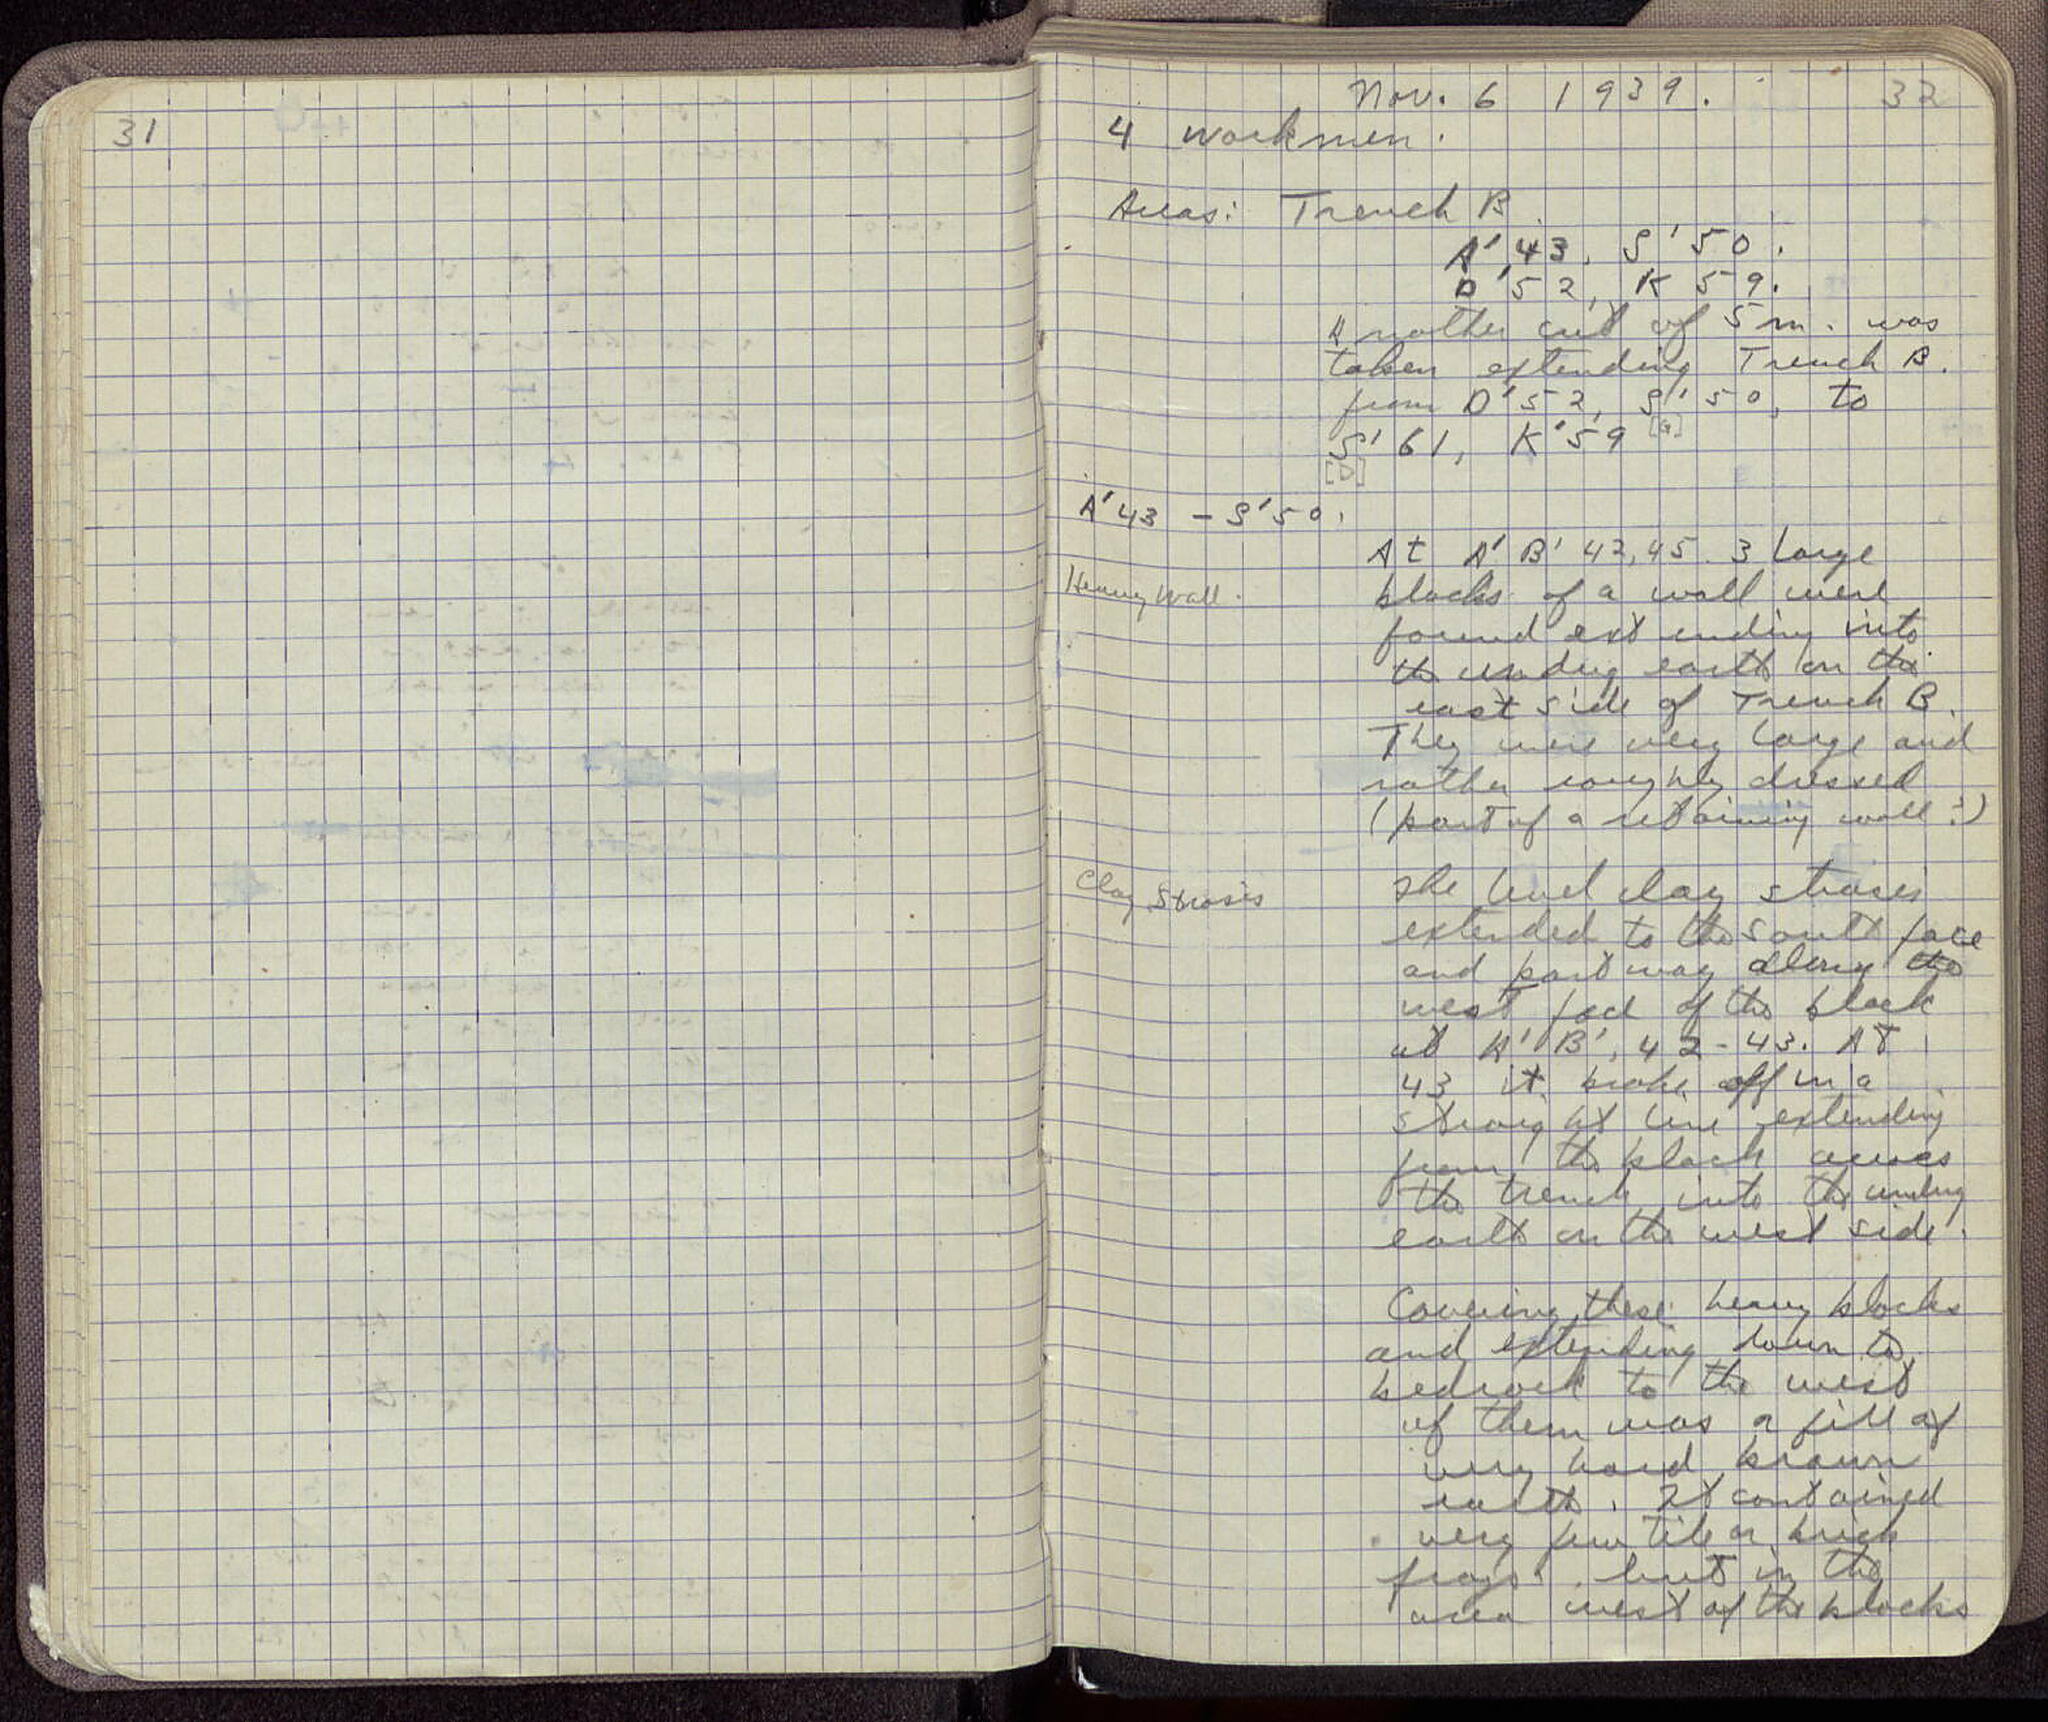 31
Nov. 6 1939. 32
4 workmen.
Areas: Trench B
A'43, S'50.
D'52, K 59.
Another cut of 5 m. was
taken extending Trench B.
from D'52, S'50, to
[G]
S'61, K'59
[D]
A'43 - S'50.
At A' B' 42,45. 3 large
Heavy Wall.
blocks of a wall were
found extending into
the undug earth on the
east side of Trench B.
They were very large and
rather roughly dressed
(part of a retaining wall?)
Clay Strosis
The level clay strosis
extended to the south face
and part way along the
west face of the block
at A' B', 42-43. At
43 it broke off in a
straight line extending
from the block across
the trench into the undug
earth on the west side.
Covering these heavy blocks
and extending down to
bedrock to the west
of them was a fill of
very hard brown
earth. It contained
very few tile or brick
frags. but in the
area west of the blocks